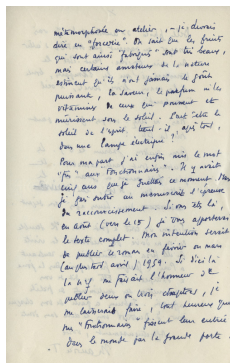 métamorphosée en atelier, – je devrais
dire en "forcerie". On sait que les fruits
qui sont ainsi "fabriqués" sont très beaux,
mais certains amateurs de la nature
estiment qu'ils n'ont jamais le goût
puissant, la saveur, le parfum ni les
vitamines de ceux qui poussent et
mûrissent sous le soleil. Peut-être le
soleil de l'esprit tient-il, après tout,
dans une lampe électrique!
Pour ma part j'ai enfin mis le mot
"fin" aux Fonctionnaires. Il y avait
ans que je ce moment. Mais
je dois entre au manuscrit l'épreuve
du raccourcissement. Si vous êtes là,
en août (vers le 15) je vous apporterai
le texte complet. Mon intention serait
de publier le roman en février ou mars
(au plus tard avril) 1959. Si d'ici là
la me faisait l'honneur de
publier deux ou trois chapitres, je
me laisserais faire, tout heureux que
mes "Fonctionnaires" fissent leur entrée
dans le monde par la grande porte.